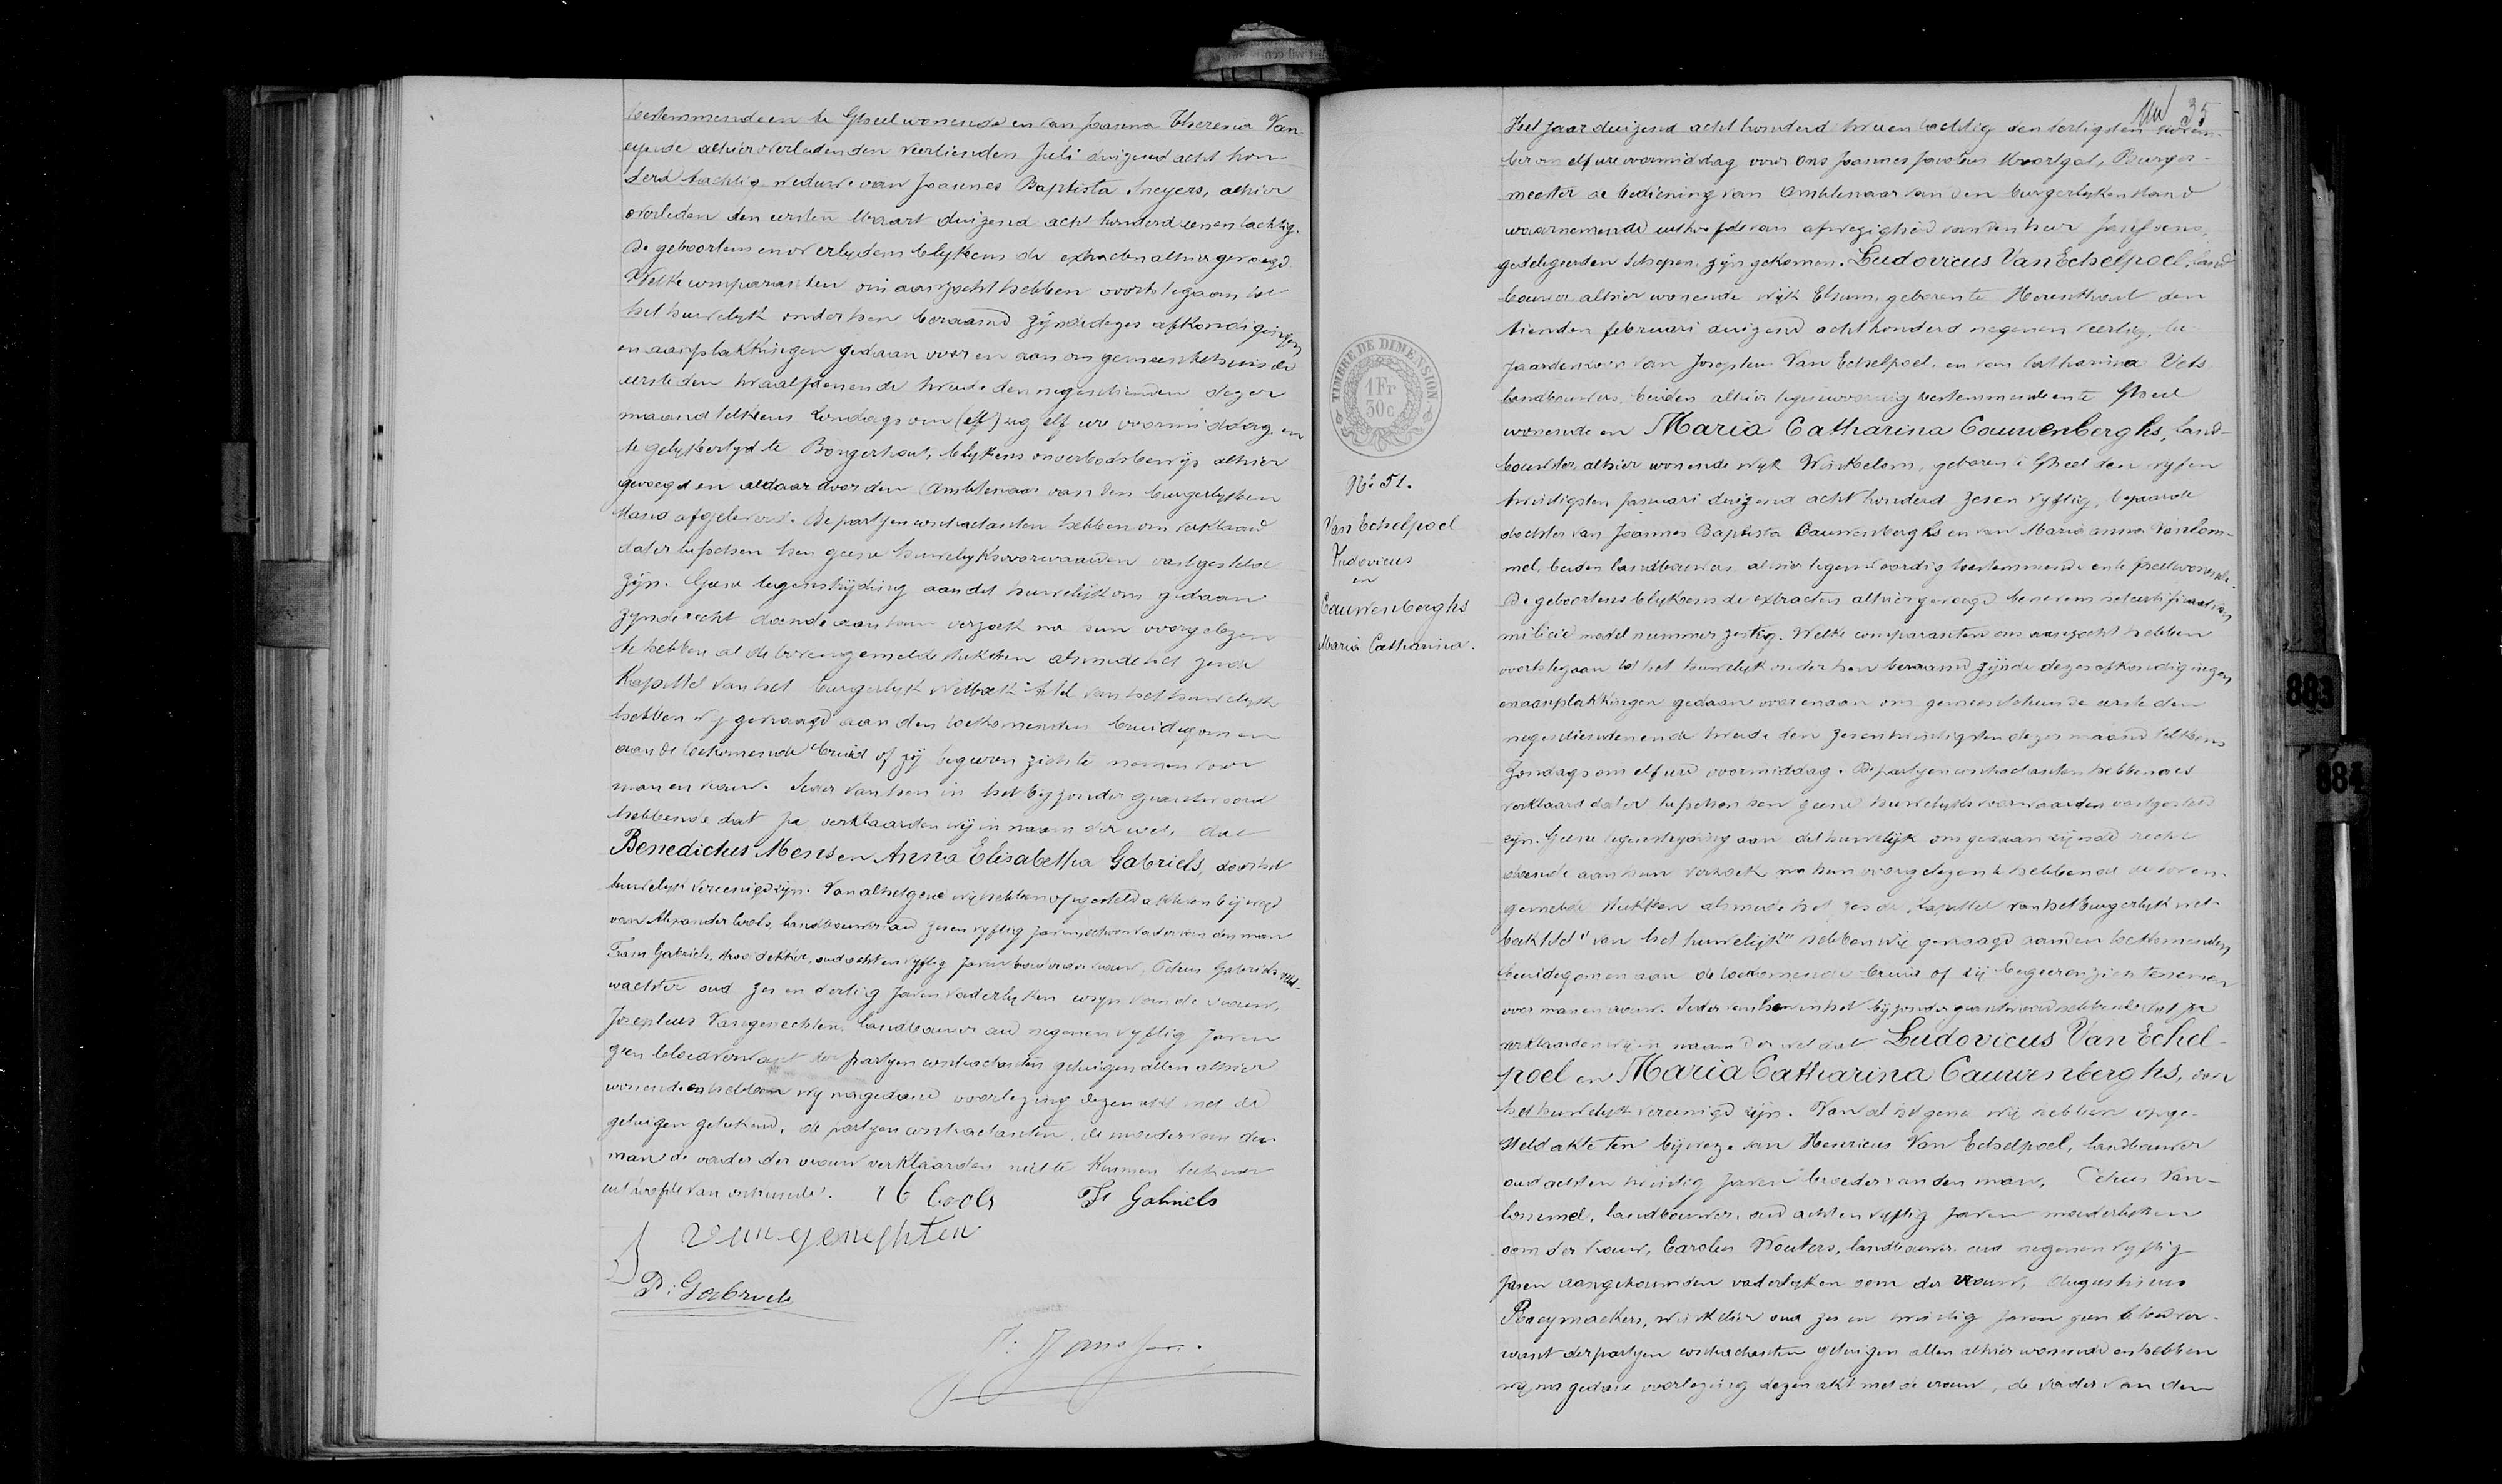 toestemmende en te Gheel wonende en van Joanna Theresia Van-
eynde alhier overleden den veertienden Juli duizend acht hon-
derd tachtig weduwe van Joannes Baptista Sneyers, alhier
overleden den eersten Maart duizend acht honderd eenen tachtig.
De geboortens en overlydens blykens de extracten alhier gevoegd
Welke comparanten ons aanzocht hebben voorts te gaan tot
het huwelyk onder hen beraamd zynde dezes afkondigingen
en aanplakkingen gedaan voor en aan ons gemeentehuis de
eerste den twaalfden en de tweede den negentienden dezer
maand telkens Zondags om (elf) zeg elf ure voormiddag en
te gelykertyd te Borgerhout, blykens onverbodsbewys alhier
gevoegd en aldaar door den Ambtenaar van den burgerlyken
stand afgeleverd. De partyen contractanten hebben ons verklaard
dat er tusschen hen geene huwelyksvoorwaarden vastgesteld
zyn. Geene tegenstryding aan dit huwelyk ons gedaan
zynde recht doende aan hun verzoek na hun voorgelezen
te hebben al de bovengemelde stukken alsmede het zesde
Kapittel van het burgerlyk Wetboek titel van het huwelyk
hebben wy gevraagd aan den toekomenden bruidegom en
aan de toekomende bruid of zy begeeren zich te nemen voor
man en vrouw. Ieder van hen in het byzonder geantwoord
hebbende dat Ja verklaarden wy in naam der wet, dat
Benedictus Mens en Anna Elisabetha Gabriels, door het
huwelyk vereenigd zyn. Van al hetgene wy hebben opgesteld akte ten bywezen
van Alexander Cools, landbouwer oud zesen vyftig Jaren, schoonvader van den man
Frans Gabriels, stroodekker, oud acht en vyftig Jaren broeder der vrouw, Petrus Gabriels veld-
wachter oud zes en dertig Jaren vaderlyken cozyn van de vrouw,
Josephus Vangenechten, landbouwer oud negenen vyftig Jaren
geen bloedverwant der partyen contractanten getuigen allen alhier
wonende en hebben wy na gedane voorlezing dezen akt met de
getuigen geteekend, de partyen contractanten, de moeder van den
man de vader der vrouw verklaarden niet te kunnen teekenen
uit hoofde van onkunde. Cools Fs Gabriels
Van genechten
P. Gabriels
35
Het jaar duizend acht honderd tweeen tachtig den dertigsten novem-
ber om elf ure voormiddag voor ons Joannes Jacobus Moortgat, Burge-
meester de bediening van Ambtenaar van den burgerlyken stand
waarnemende uit hoofde van afwezigheid van den heer Janssens,
gedelegeerden Schepen, zyn gekomen. Ludovicus Van Echelpoel, land-
bouwer alhier wonende wyk Elsum, geboren te Herenthout den
tienden februari duizend acht honderd negenen veertig, be-
jaarden zoon van Josephus Van Echelpoel, en van Catharina Vets
landbouwers, beiden alhier tegenwoordig toestemmende en te Gheel
wonende en Maria Catharina Cauwenberghs, land-
bouwster, alhier wonende wyk Winkelom, geboren te Gheel den vyfen
twintigsten Januari duizend acht honderd zesen vyftig, bejaarde
dochter van Joannes Baptista Cauwenberghs en van Maria anna Vanlom-
mel, beiden landbouwers, alhier tegenwoordig toestemmende en te Gheel wonende.
De geboortens blykens de extracten alhier gevoegd benevens het certificaat van
milicie model nummer zestig. Welke comparanten ons aanzocht hebben
voorts te gaan tot het huwelyk onder hen beraamd zynde dezes afkondigingen
en aanplakkingen gedaan voor en aan ons gemeentehuis de eerste den
negentienden en de tweede den zesentwintigsten dezer maand telkens
Zondags om elf ure voormiddag. De partyen contractanten hebben ons
verklaard dat er tusschen hen geene huwelyksvoorwaarden vastgesteld
zyn. Geene tegenstryding aan dit huwelyk ons gedaan zynde recht
doende aan hun verzoek na hun voorgelezen te hebben al de boven-
gemelde stukken alsmede het zesde Kapittel van het burgerlyk wet-
boek titel "van het huwelyk" hebben wy gevraagd aan den toekomenden
bruidegom en aan de toekomende bruid of zy begeeren zich te nemen
voor man en vrouw. Ieder van hen in het byzonder geantwoord hebbende dat Ja
verklaarden wy in naam der wet dat Ludovicus Van Echel-
poel en Maria Catharina Cauwenberghs, door
het huwelyk vereenigd zyn. Van al hetgene wy hebben opge-
steld akte ten bywezen van Henricus Van Echelpoel, landbouwer
oud achten twintig Jaren broeder van den man, Petrus Van-
lommel, landbouwer, oud achten vyftig Jaren moederlyken
oom der vrouw, Carolus Wouters, landbouwer oud negenen vyftig
Jaren aangetrouwden vaderlyken oom der vrouw, Augustinus
Raeymaekers, winkelier oud zes en twintig Jaren geen bloedver-
want der partyen contractanten getuigen allen alhier wonende en hebben
wy na gedane voorlezing dezen akt met de vrouw, de vader van den
TIMBRE DE DIMENSION
1 Fr
30 c
No. 51.
Van Echelpoel
Ludovicus
en
Cauwenberghs
Maria Catharina.
883
884